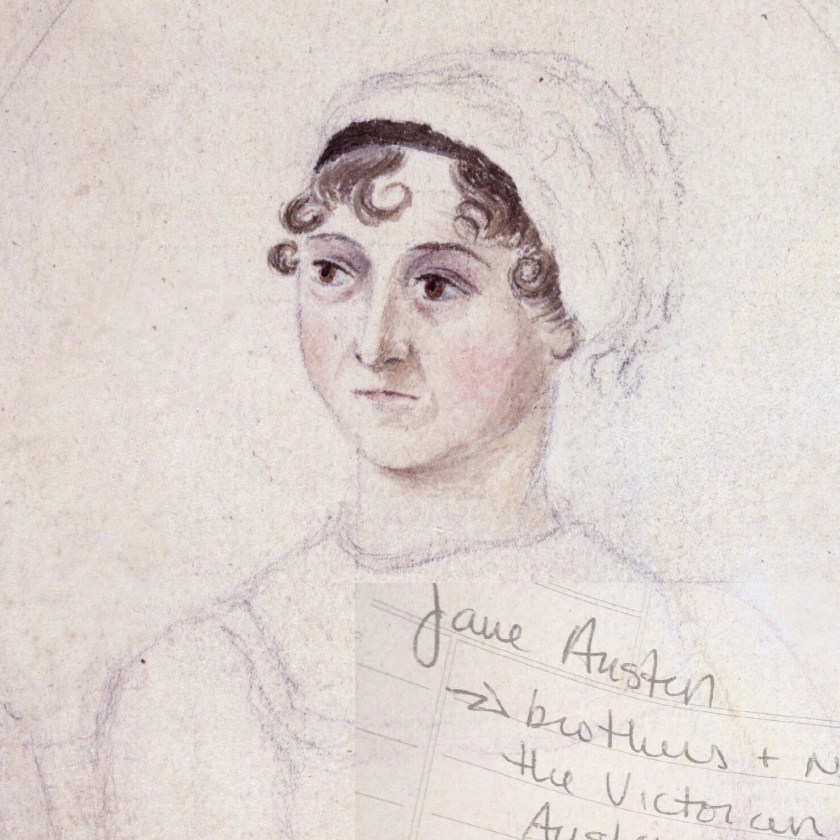 Jane Austen
→ brothers +
the Victorian